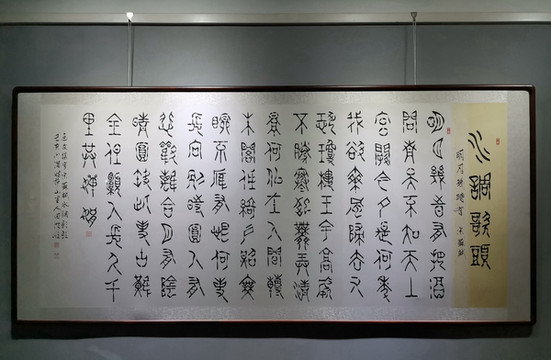 水調歌頭
明月幾時有 宋 蘇軾
明月幾時有把酒
問青天不知天上
宮闕今夕是何年
我欲乘風歸去又
恐瓊樓玉宇高處
不勝寒起舞弄清
影何似在人間轉
朱閣低綺戶照無
眠不應有恨何事
長向別時圓人有
悲歡離合月有陰
晴圓缺此事古難
全但願人長久千
里共嬋娟